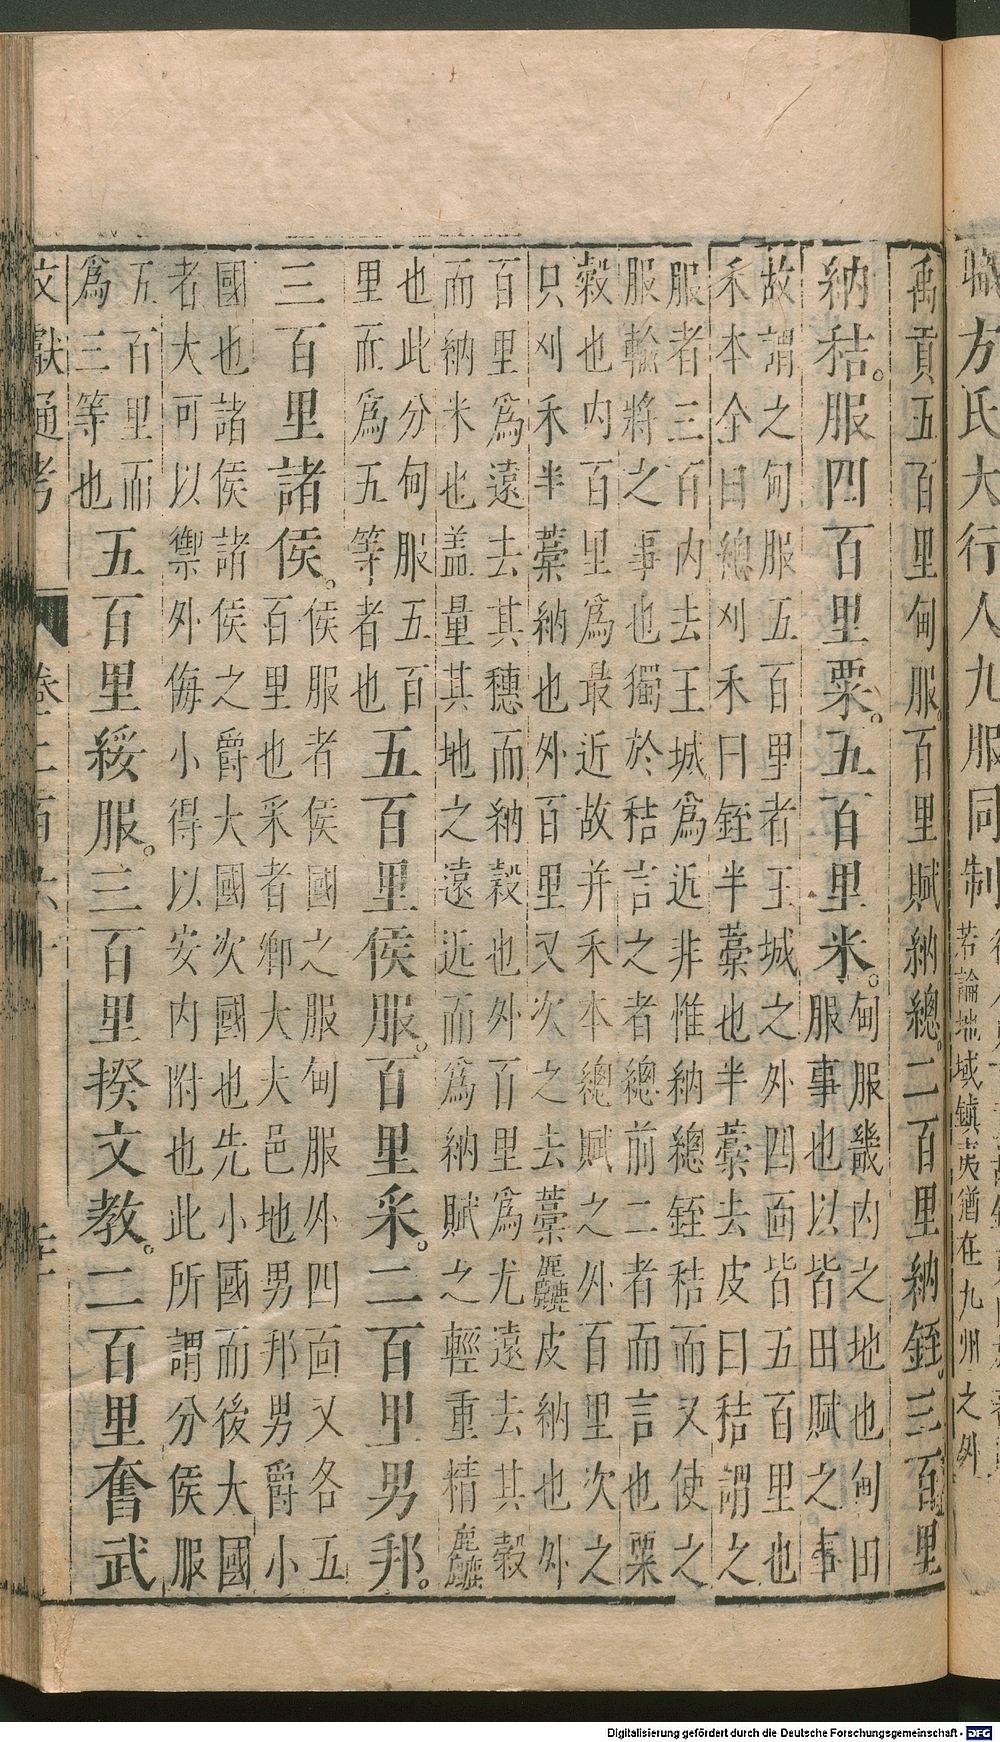 職方氏大行人九服同制
若論地域鎮夷猶在九州之外
禹貢五百里甸服。百里賦納總。二百里納銍。三百里
納秸。服四百里粟。五百里米。
甸服畿内之地也甸田
服事也以皆田賦之事
故謂之甸服五百里者王城之外四面皆五百里也
禾本全曰總刈禾曰銍半藁也半藁去皮曰秸謂之
服者三百内去王城爲近非惟納總銍秸而又使之
服輸將之事也獨於秸言之者總前二者而言也粟
穀也内百里爲最近故并禾本總賦之外百里次之
只刈禾半藁納也外百里又次之去藁麤皮納也外
百里爲遠去其穗而納穀也外百里爲尤遠去其穀
而納米也盖量其地之遠近而爲納賦之輕重精麤
也此分甸服五百
里而爲五等者也
五百里侯服。百里采。二百里男邦。
三百里諸侯。
侯服者侯國之服甸服外四面又各五
百里也采者卿大夫邑地男邦男爵小
國也諸侯諸侯之爵大國次國也先小國而後大國
者大可以禦外侮小得以安内附也此所謂分侯服
五百里而
爲三等也
五百里綏服。三百里揆文教。二百里奮武
文獻通考
Digitalisierung gefördert durch die Deutsche Forschungsgemeinschaft - DFG